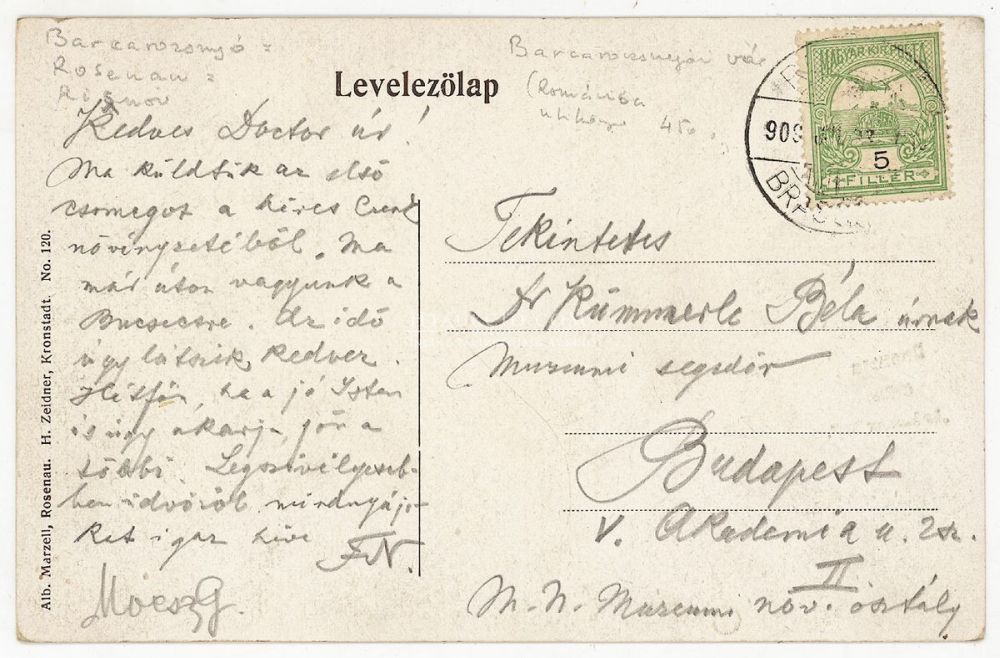 Barcarozsnyó =
Rosenau =
Risnov
Barcarozsnyói vár
(Románia
útikönyv 450.
Levelezölap
MAGYAR KIR. POSTA
5
FILLÉR
909
BRAS
Kedves Doctor úr!
Ma küldtük az első
csomagot a híres Cenk
növényzetéből. Ma
már úton vagyunk a
Bucsecsre. Az idő
úgy látszik kedvez.
Hétfőn, ha a jó Isten
is úgy akarja, jön a
többi. Legszivélyeseb-
ben üdvözöl mindnyájo-
kat igaz híve
F. N.
Moesz G.
Tekintetes
Dr Kümmerle Béla úrnak
Muzeumi segédőr
Budapest
V. Akademia u. 2 sz.
II
M. N. Muzeumi növ. osztály
Alb. Marzell, Rosenau. H. Zeidner, Kronstadt. No. 120.